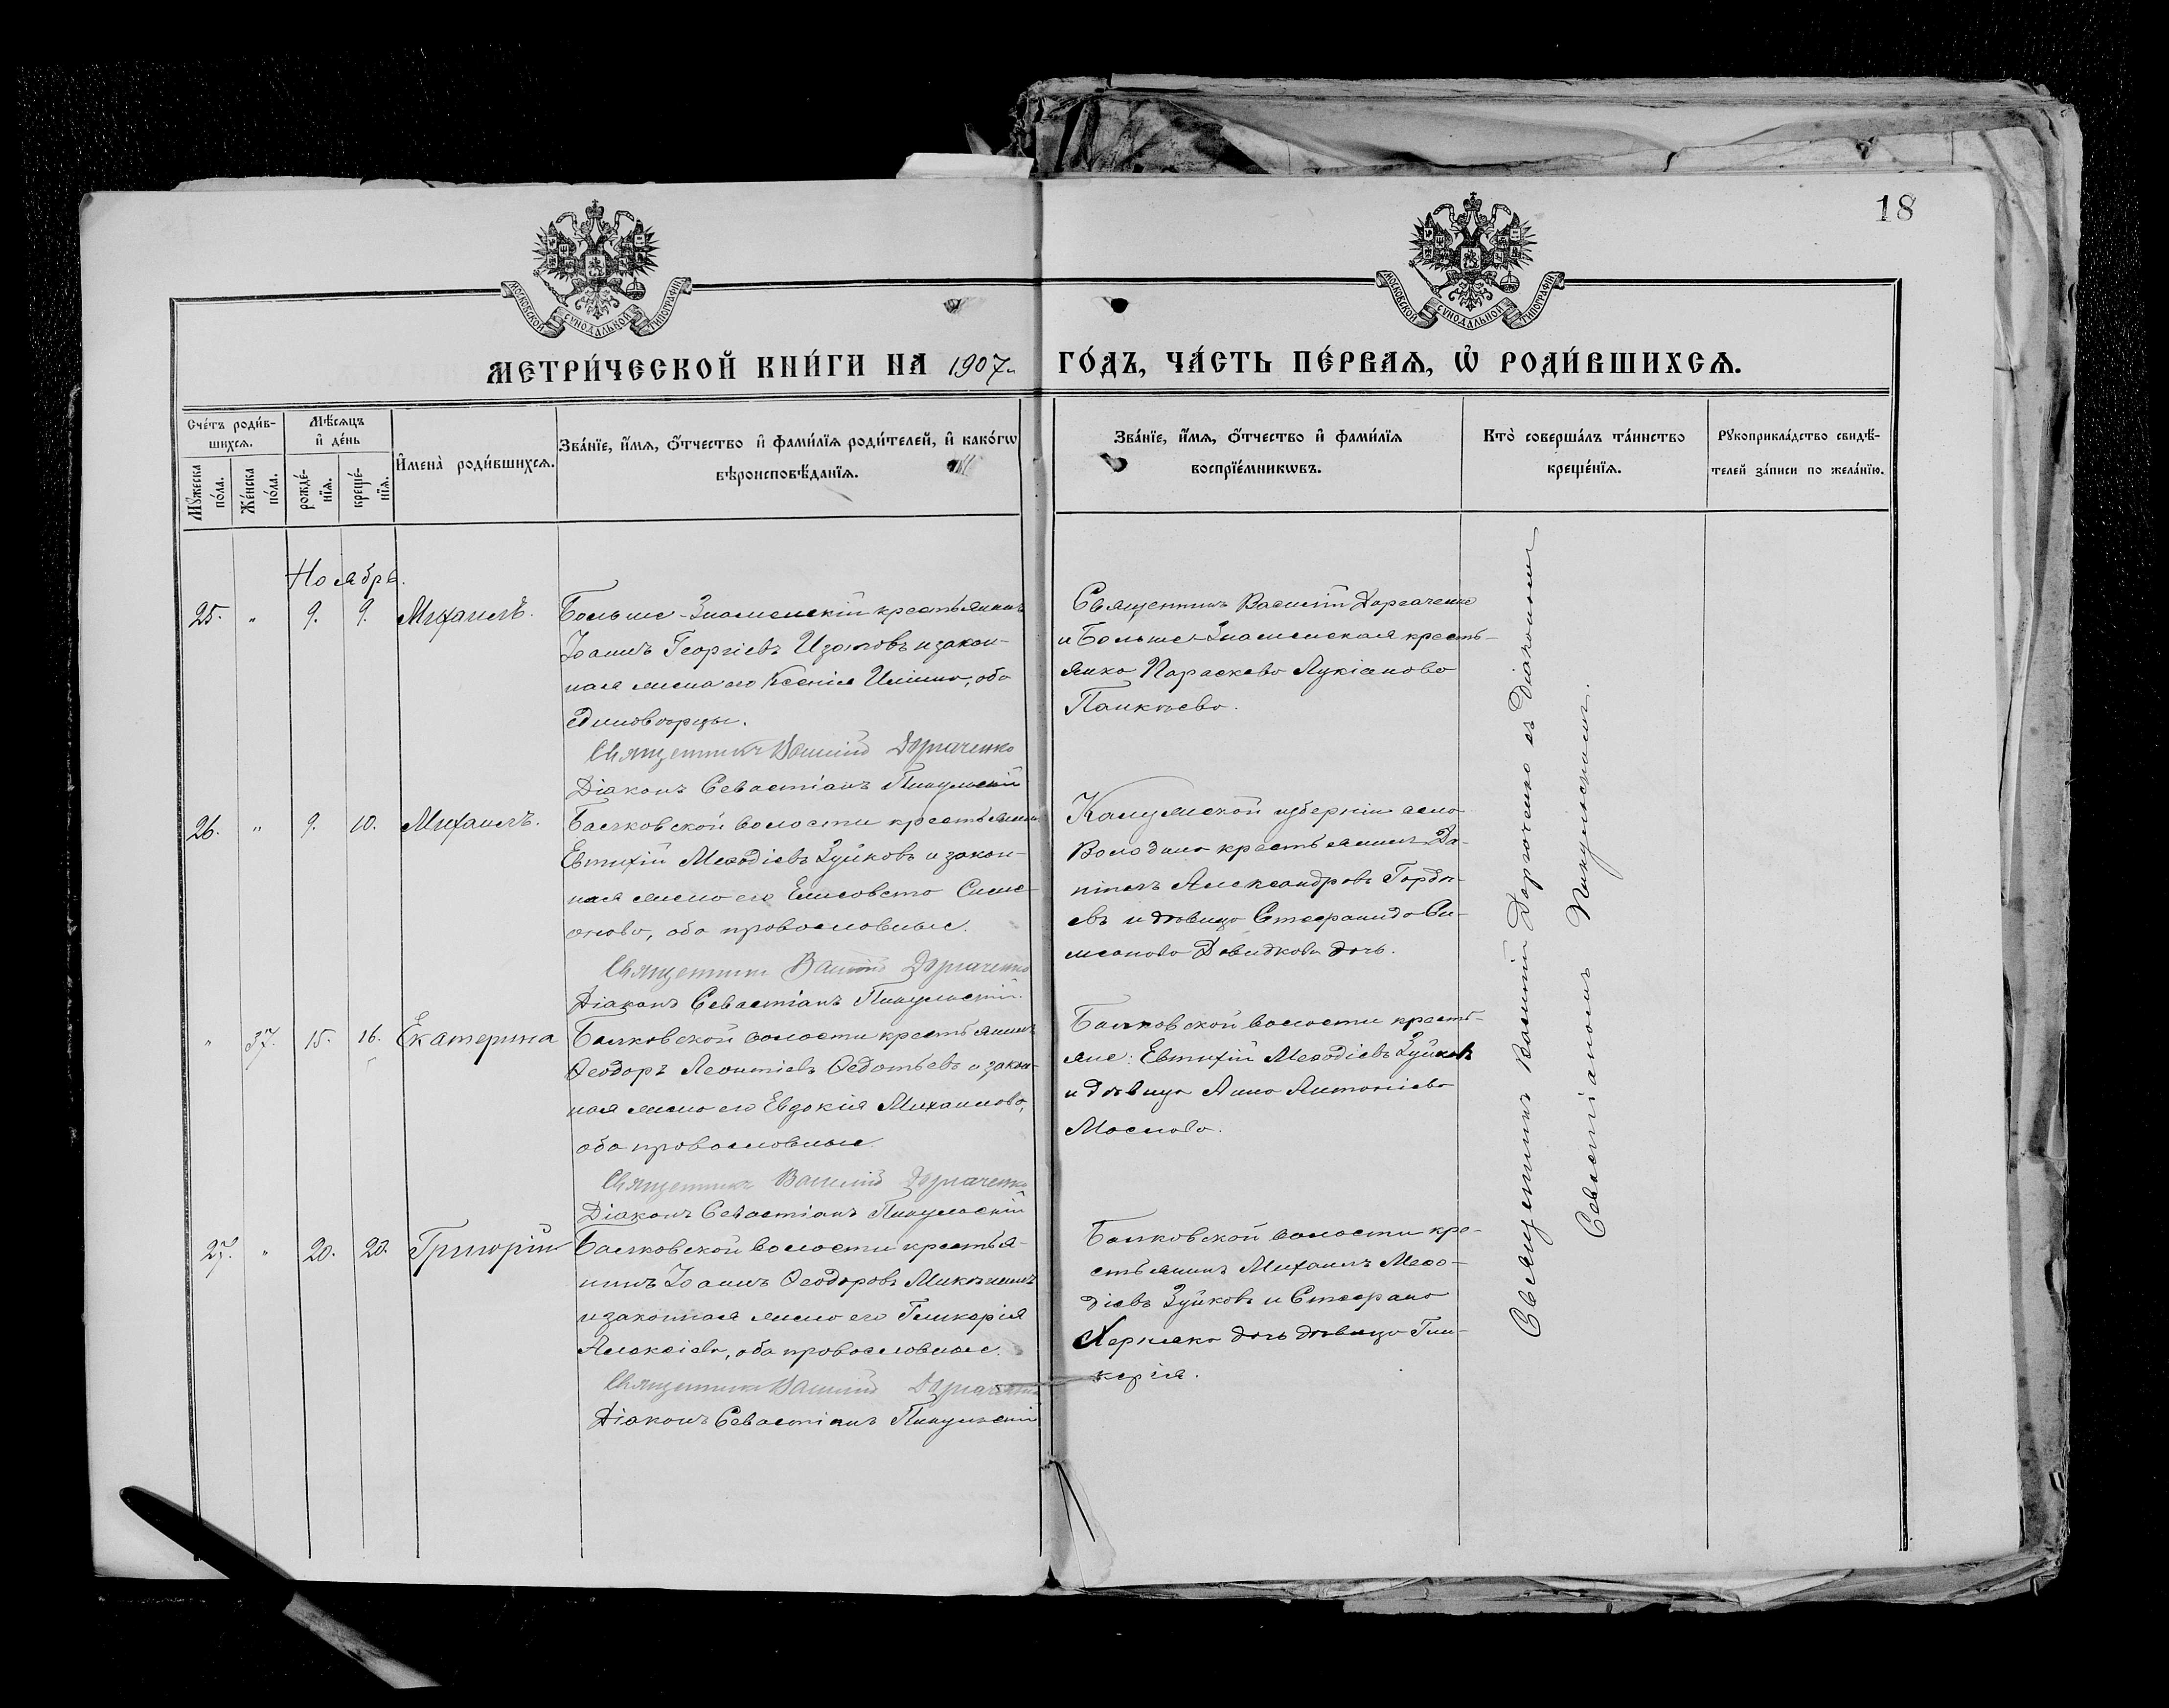 18
МОСКОВСКОЙ СѴНОДАЛЬНОЙ ТИПОГРАФІИ
МОСКОВСКОЙ СѴНОДАЛЬНОЙ ТИПОГРАФІИ
МЕТРИ́ЧЕСКОЙ КНИ́ГИ НА 1907 ГО́ДЪ, ЧА́СТЬ ПЕ́РВАѦ, Ѡ҆ РОДИ́ВШИХСѦ.
Сче́тъ роди́в-
шихсѧ.
Мꙋ́жеска
по́ла.
Же́нска
по́ла.
Мѣ́сѧцъ
и҆ де́нь
рожде́-
нїѧ.
креще́-
нїѧ.
И҆мена̀ роди́вшихсѧ.
Зва́нїе, и҆́мѧ, ѻ҆́тчество и҆ фами́лїѧ роди́телей, и҆ како́гѡ
вѣроисповѣ́данїѧ.
Зва́нїе, и҆́мѧ, ѻ҆́тчество и҆ фами́лїѧ
воспрїе́мникѡвъ.
Кто̀ соверша́лъ та́инство
креще́нїѧ.
Рꙋкоприкла́дство свидѣ́-
телей за́писи по жела́нїю.
Ноябрь.
25. " 9. 9. Михаилъ.
Больше-Знаменскій крестьянинъ
Іоаннъ Георгіевъ Изотовъ и закон-
ная жена его Ксенія Ильина, оба
единовѣрцы.
Священникъ Василій Дергаченко
Діаконъ Севастіанъ Пикульскій
Священникъ Василій Дергаченко
и Больше-Знаменская кресть-
янка Параскева Лукіанова
Панкѣева.
26. " 9. 10. Михаилъ.
Балковской волости крестьянинъ
Евтихій Меѳодіевъ Зуйковъ и закон-
ная жена его Елисавета Симе-
онова, оба православные.
Священникъ Василій Дергаченко
Діаконъ Севастіанъ Пикульскій.
Калужской губерніи села
крестьянинъ Да-
ніилъ Александровъ
евъ и дѣвица Стефанида Си-
меонова Давидкова дочь.
" 37. 15. 16. Екатерина
Балковской волости крестьянинъ
Ѳеодоръ Леонтіевъ Ѳедотьевъ и закон-
ная жена его Евдокія Михаилова,
оба православные.
Священникъ Василій Дергаченко
Діаконъ Севастіанъ Пикульскій
Балковской волости кресть-
яне: Евтихій Меѳодіевъ Зуйковъ
и дѣвица Анна Антоніева
Маслова.
27. " 20. 20. Григорій
Балковской волости крестья-
нинъ Іоаннъ Ѳеодоровъ
и законная жена его Гликерія
Алексіева, оба православные.
Священникъ Василій Дергаченко
Діаконъ Севастіанъ Пикульскій
Балковской волости кре-
стьянинъ Михаилъ Меѳо-
діевъ Зуйковъ и Стефана
дочь дѣвица Гли-
керія.
Священникъ Василій Дергаченко съ Діакономъ
Севастіаномъ Пикульскимъ.